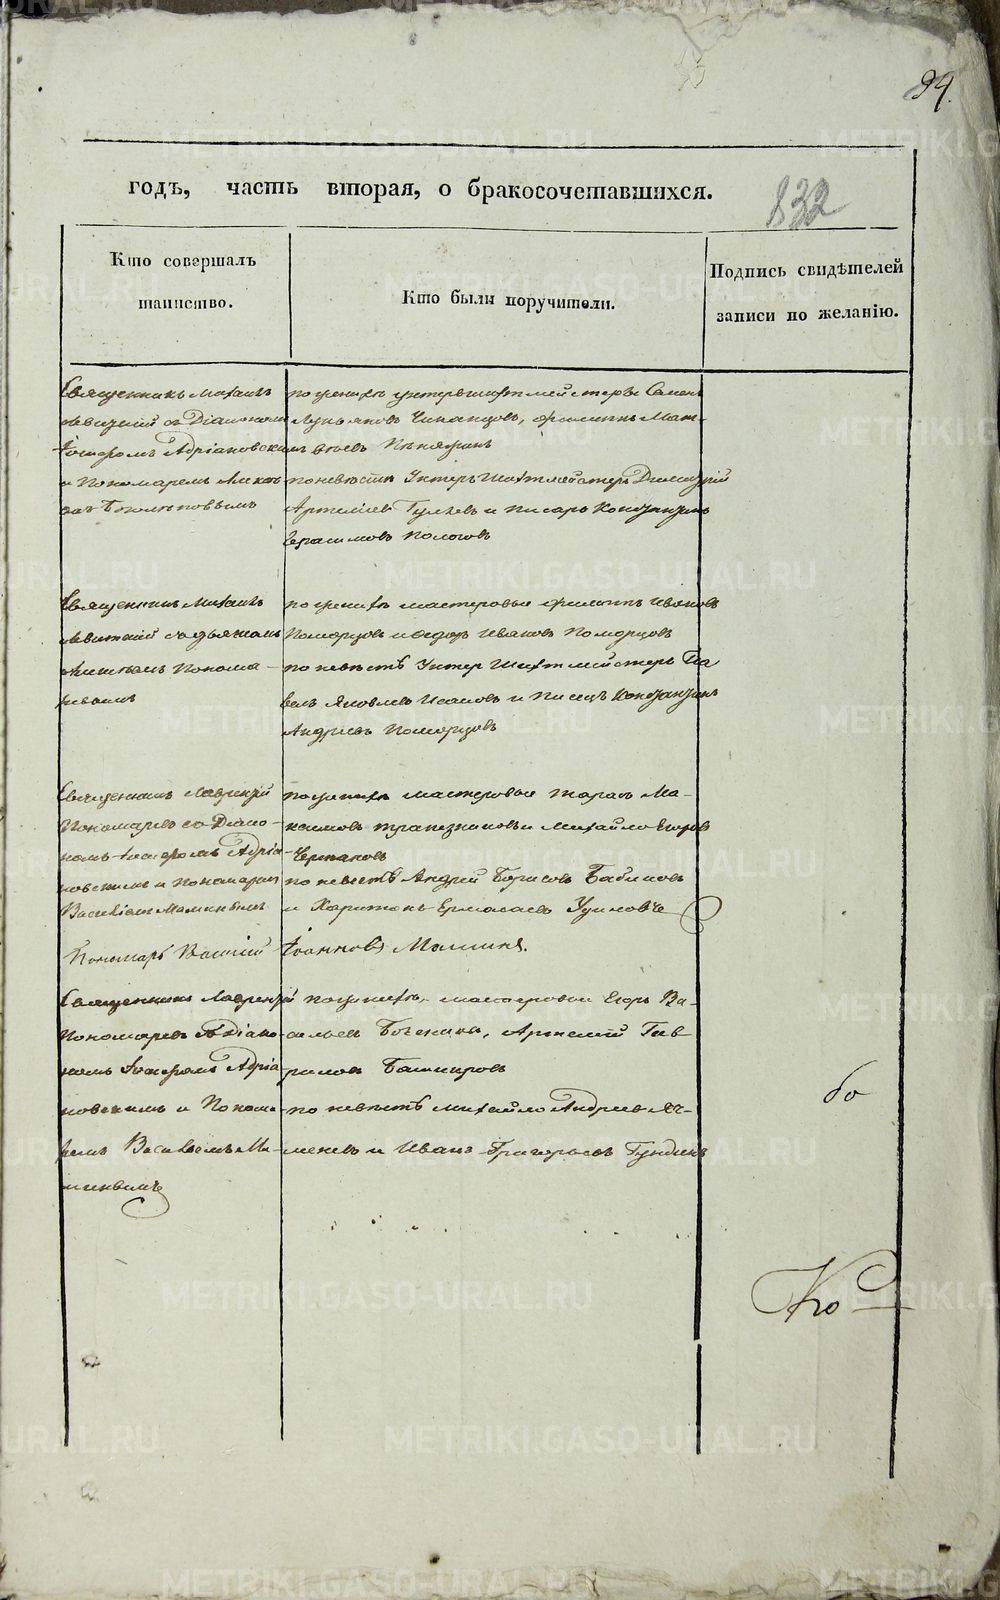 94.
годъ, часть вторая, о бракосочетавшихся.
832
Кто совершалъ
таинство.
Кто были поручители.
Подпись свидѣтелей
записи по желанію.
Священникъ Михаилъ
Левицкій съ Діакономъ
Іосифомъ Адріановскимъ
и Пономаремъ
по женихѣ унтершихтмейстеръ Семенъ
Лукьяновъ Филиппъ Мат-
вѣевъ
по невѣстѣ Унтеръ Шихтмейстеръ Димитрій
Артеміевъ и Писарь Констянтинъ
Герасимовъ Пологовъ
Священникъ Михаилъ
Левитскій съ дьякономъ
Понома-
ревымъ
по женихѣ мастеровые Филиппъ Ивановъ
Поморцовъ и Федоръ Ивановъ Поморцовъ
по невѣстѣ Унтер Шихтмейстеръ Па
велъ Яковлевъ Исаковъ и Писецъ Констянтинъ
Андреевъ Поморцовъ
Священникъ Лаврентій
Пономаревъ со Діако-
номъ Іосифомъ Адріа-
новскимъ и Пономаремъ
Василіемъ Маминымъ
по женихѣ мастеровые Тарасъ Ма-
ксимовъ Трапезниковъ и Михайло Егоровъ
Чермаковъ
по невѣстѣ Андрей Борисовъ Бабиновъ
и Харитонъ Ермолаевъ
Пономарь Василій Іоанновъ Маминъ.
Священникъ Лаврентій
Пономаревъ съ Діако-
номъ Іосифомъ Адріа
новскимъ и Понома-
ремъ Василіемъ Ма-
минымъ
по женихѣ мастеровые Егоръ Ва-
сильевъ Артемій Гав-
риловъ Башкировъ
по невѣстѣ Михайло Андреевъ Яч-
меневъ и Иванъ Григорьевъ Гундинъ
бо
METRIKI.GASO-URAL.RU